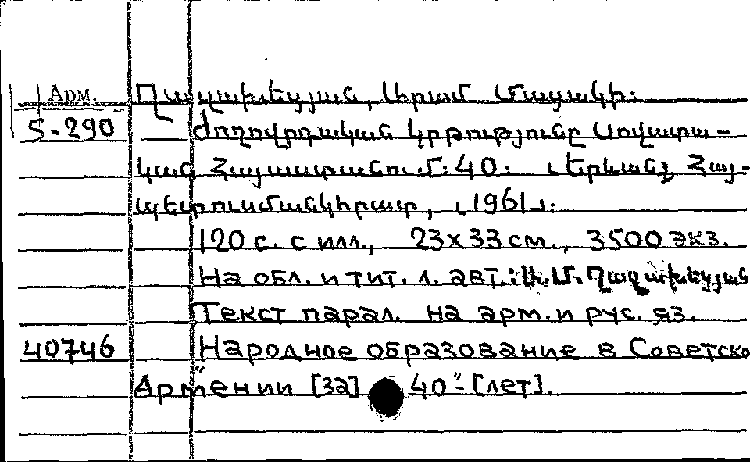 Арм. Ղազախեցյան, Արամ Մացակի.
S-290 Ժողովրդական կրթությունը Սովետա-
կան Հայաստանում. 40. Երևան, Հայ-
պետուսմանկհրատ, 1961.
120 с. с илл., 23x33 см., 3500 экз.
На обл. и тит. л. авт.: Ա.Մ. Ղազախեցյան
Текст парал. на арм. и рус. яз.
40746 Народное образование в Советско
Армении [за] "40" [лет].